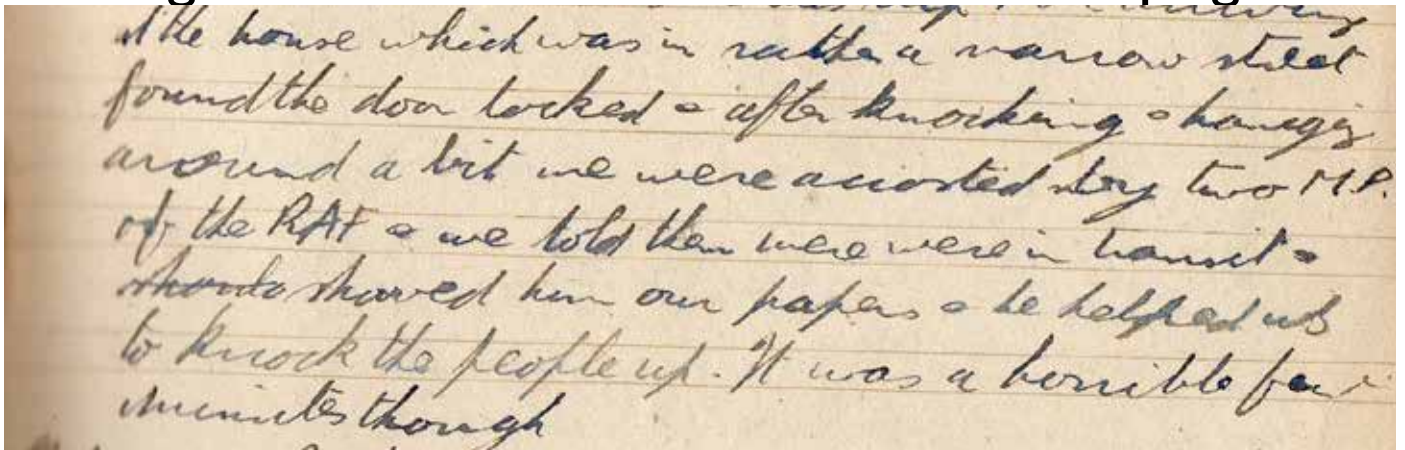 the house which was in rather a narrow street
found the door locked & after knocking & hanging
around a bit we were accosted by two M.P.
of the RAF & we told them were were in transit &
showed him our papers & he helped us
to knock the people up. It was a horrible few
minutes though